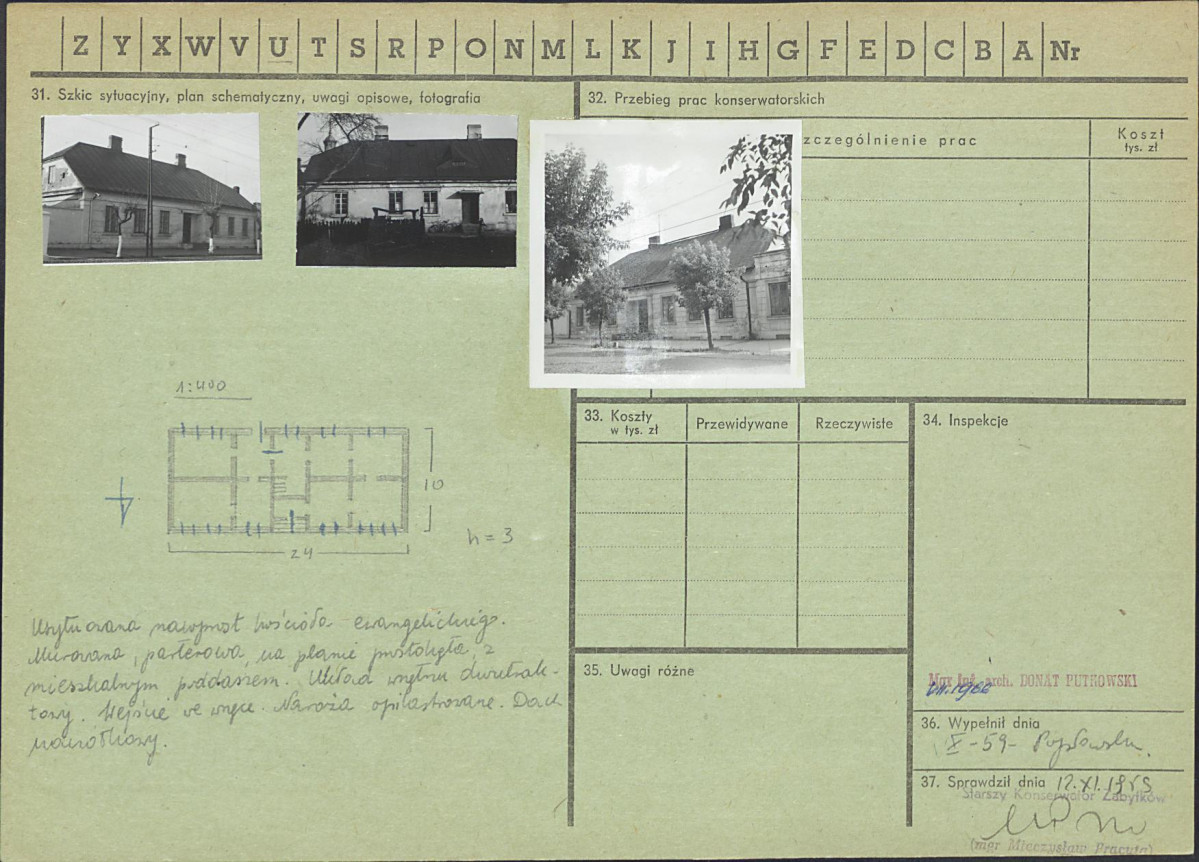 Z Y X W V U T S R P O N M L K J I H G F E D C B A Nr
31. Szkic sytuacyjny, plan schematyczny, uwagi opisowe, fotografia
32. Przebieg prac konserwatorskich
zczególnienie prac
Koszt
tys. zł
1:400
10
24
h = 3
Usytuowana nawprost kościoła ewangelickiego.
Murowana, parterowa, na planie prostokąta, z
mieszkalnym poddaszem. Układ wnętrz dwutrak-
towy. Wejście we wnęce. Naroża opilastrowane. Dach
naczółkowy.
33. Koszty
w tys. zł
Przewidywane
Rzeczywiste
34. Inspekcje
35. Uwagi różne
Mgr inż. arch. DONAT PUTKOWSKI
VII.1966
36. Wypełnił dnia
X-59-
37. Sprawdził dnia 12.XI.1959
Starszy Konserwator Zabytków
(mgr Mieczysław Pracuta)